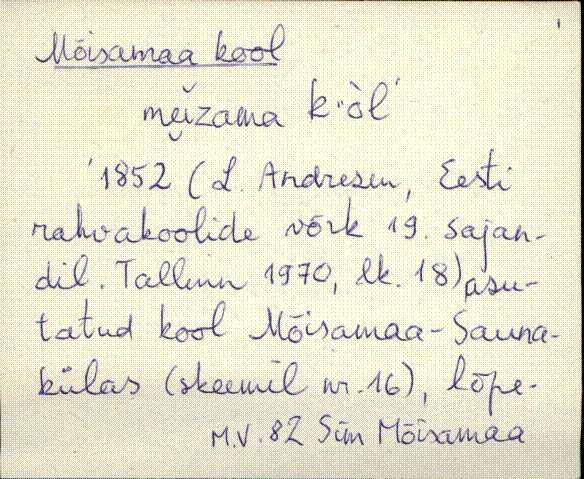 1
Mõisamaa kool
mĕi̯zama k·òl´
'1852 (L. Andresen, Eesti
rahvakoolide võrk 19. sajan-
dil. Tallinn 1970, lk. 18) asu-
tatud kool Mõisamaa-Sauna-
külas (skeemil nr. 16), lõpe-
M.V. 82 Sim Mõisamaa